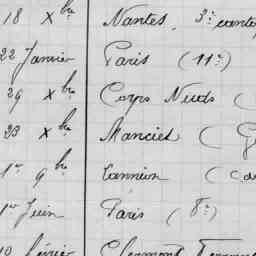 18 Xbre Nantes, 3e canton
22 Janvier Paris (11e)
29 Xbre Corps Nuds (
23 Xbre Manciet (G
1er 9bre Lannion (Co
1er Juin Paris (8e)
10 Février Clermont Ferrand